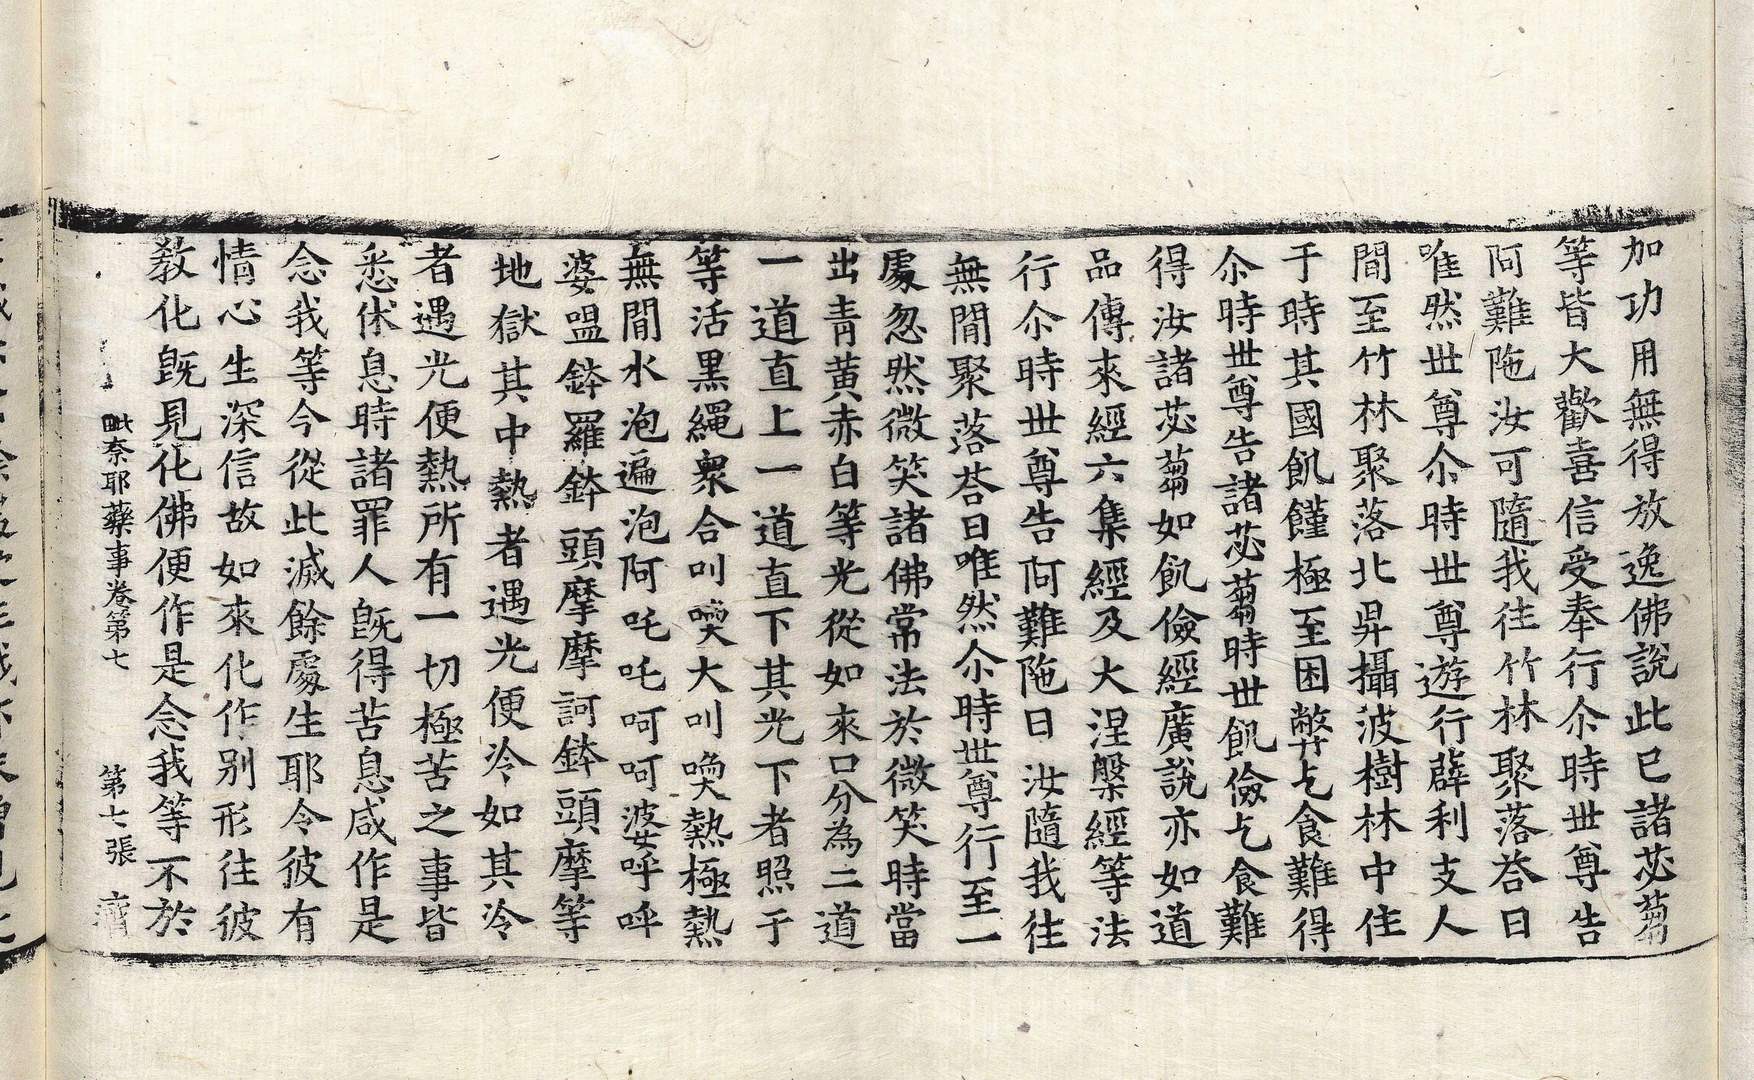 加功用無得放逸佛說此已諸苾蒭
等皆大歡喜信受奉行尒時世尊告
阿難陁汝可隨我往竹林聚落荅曰
唯然世尊尒時世尊遊行薜利支人
閒至竹林聚落北昇攝波樹林中住
于時其國飢饉極至困弊乞食難得
尒時世尊告諸苾蒭時世飢儉乞食難
得汝諸苾蒭如飢儉經廣說亦如道
品傳來經六集經及大涅槃經等法
行尒時世尊告阿難陁曰汝隨我往
無閒聚落荅曰唯然尒時世尊行至一
處忽然微笑諸佛常法於微笑時當
出青黃赤白等光從如來口分為二道
一道直上一道直下其光下者照于
等活黑繩衆合叫喚大叫喚熱極熱
無閒水泡遍泡阿吒吒呵呵婆呼呼
婆嗢鉢羅鉢頭摩摩訶鉢頭摩等
地獄其中熱者遇光便冷如其冷
者遇光便熱所有一切極苦之事皆
悉休息時諸罪人旣得苦息咸作是
念我等今從此滅餘處生耶令彼有
情心生深信故如來化作别形往彼
敎化旣見化佛便作是念我等不於
毗奈耶藥事卷第七 第七張